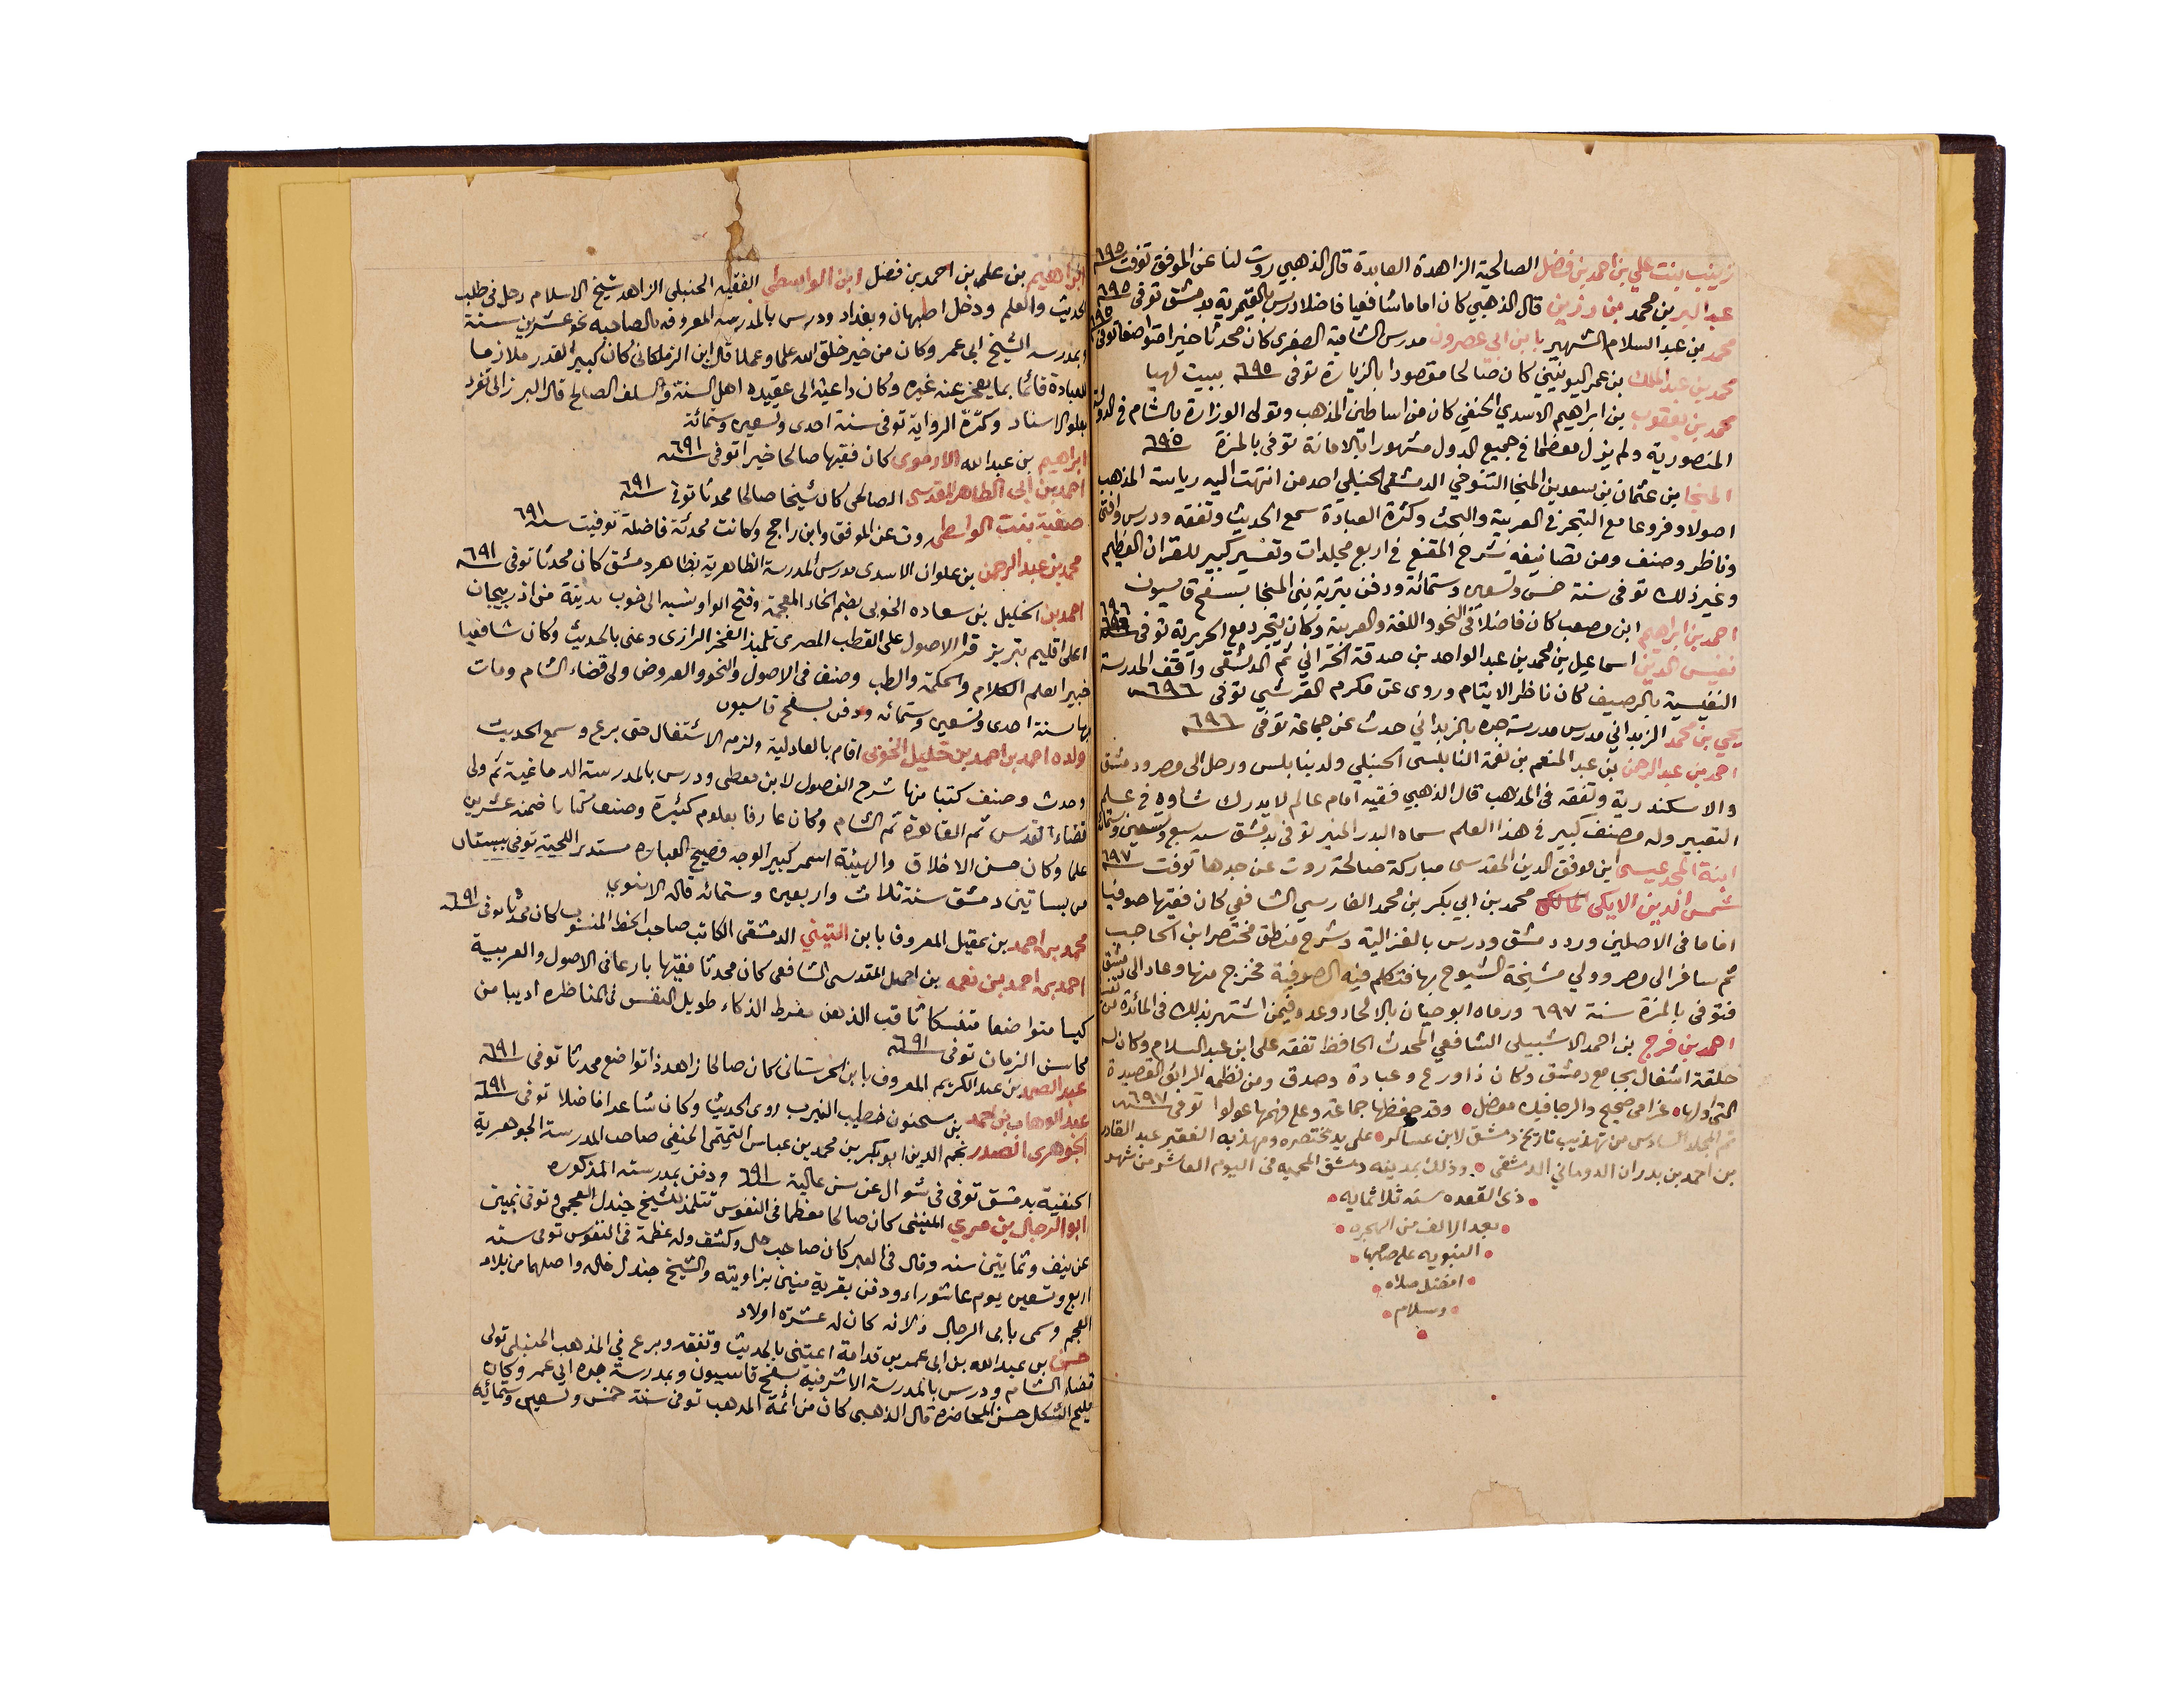 زينب بنت علي بن احمد بن فضل الصالحية الزاهدة العابدة قال الذهبي روت لنا عن الموفق توفت ٦٩٥
عبد البر بن محمد بن رزين قال الذهبي كان اماما شافعيا فاضلا درس بالقيمرية بدمشق توفى ٦٩٥
محمد بن عبد السلام الشهير بابن ابي عصرون مدرس الشامية الصغرى كان محدثا خيرا متواضعا توفى ٦٩٥
محمد بن عبد الملك بن عمر اليونيني كان صالحا مقصودا بالزيارة توفى ٦٩٥ ببيت لهيا
محمد بن يعقوب بن ابراهيم الاسدي الحنفي كان من اساطين المذهب وتولى الوزارة بالشام في الدولة
المنصورية ولم يزل معظما في جميع الدول مشهورا بالامانة توفى بالمزة ٦٩٥
المنجا بن عثمان بن سعد بن المنجا التنوخي الدمشقي الحنبلي احد من انتهت اليه رياسة المذهب
اصولا وفروعا مع التبحر في العربية والبحث وكثرة العبادة سمع الحديث وتفقه ودرس وافتى
وناظر وصنف ومن تصانيفه شرح المقنع في اربع مجلدات وتفسير كبير للقران العظيم
وغير ذلك توفى سنة خمس وتسعين وستمائة ودفن بتربة بني المنجا بسفح قاسيون
احمد بن ابراهيم ابن مصعب كان فاضلا في النحو واللغة والعربية وكان يتجرد مع الحريرية توفى ٦٩٦
نفيس الدين اسماعيل بن محمد بن عبد الواحد بن صدقة الحراني ثم الدمشقي واقف المدرسة
النفيسية بالرصيف كان ناظر الايتام وروى عن مكرم القرشي توفى ٦٩٦
يحيي بن محمد الزبداني مدرس مدرسة جده بالزبداني حدث عن جماعة توفى ٦٩٦
احمد بن عبد الرحمن بن عبد المنعم بن نعمة النابلسي الحنبلي ولد بنابلس ورحل الى مصر ودمشق
والاسكندرية وتفقه في المذهب قال الذهبي فقيه امام عالم لا يدرك شاوه في علم
التعبير وله مصنف كبير في هذا العلم سماه البدر المنير توفى بدمشق سنه سبع وتسعين وستمائة
ابنة المجد عيسى ابن موفق الدين المقدسي مباركة صالحة روت عن جدها توفت ٦٩٧
شمس الدين الايكي محمد بن ابي بكر بن محمد الفارسي الشافعي كان فقيها صوفيا
اماما في الاصلين ورد دمشق ودرس بالغزالية وشرح منطق مختصر ابن الحاجب
ثم سافر الى مصر وولي مشيخة الشيوخ بها فتكلم فيه الصوفية فخرج منها وعاد الى دمشق
فتوفى بالمزة سنة ٦٩٧ ورماه ابو حيان بالالحاد وعده فيمن اشتهر بذلك في المائدة من
احمد بن فرج بن احمد الاشبيلي الشافعي المحدث الحافظ تفقه على ابن عبد السلام وكان له
حلقة اشغال بجامع دمشق وكان ذا ورع وعبادة وصدق ومن نظمه الرائق القصيدة
التي اولها غرامي صحيح والرجا فيك معضل وقد حفظها جماعة وعلى فهمها عولوا توفى ٦٩٧
تم المجلد السادس من تهذيب تاريخ دمشق لابن عساكر على يد مختصره ومهذبه الفقير عبد القادر
بن احمد بن بدران الدوماني الدمشقي وذلك بمدينه دمشق المحميه في اليوم العاشر من شهر
ذي القعده سنه ثلاثمايه
بعد الالف من الهجره
النبويه على صاحبها
افضل صلاه
وسلام
ابراهيم بن علي بن احمد بن فضل ابن الواسطي الفقيه الحنبلي الزاهد شيخ الاسلام رحل في طلب
الحديث والعلم ودخل اصبهان وبغداد ودرس بالمدرسه المعروفه بالصاحبه نحو عشرين سنة
وبمدرسه الشيخ ابي عمر وكان من خير خلق الله علما وعملا قال ابن الزملكاني كان كبير القدر ملازما
للعبادة قائما بما يعجز عنه غيره وكان داعية الى عقيده اهل السنة والسلف الصالح قال البرزالي تفرد
بعلو الاسناد وكثرة الرواية توفى سنة احدى وتسعين وستمائة
ابراهيم بن عبد الله الارموي كان فقيها صالحا خيرا توفى سنه ٦٩١
احمد بن ابي الطاهر المقدسي الصالحي كان شيخا صالحا محدثا توفى سنه ٦٩١
صفية بنت الواسطي روت عن الموفق وابن راجح وكانت محدثة فاضلة توفيت سنه ٦٩١
محمد بن عبد الرحمن بن علوان الاسدي مدرس المدرسة الظاهرية بظاهر دمشق كان محدثا توفى سنه ٦٩١
احمد بن الخليل بن سعاده الخويى بضم الخاء المعجمة وفتح الواو نسبه الى خوب مدينة من اذربيجان
اعلى اقليم تبريز قرا الاصول على القطب المصري تلميذ الفخر الرازي وعنى بالحديث وكان شافعيا
خبيرا بعلم الكلام والحكمة والطب وصنف في الاصول والنحو والعروض ولي قضاء الشام ومات
بها سنة احدى وتسعين وستمائه ودفن بسفح قاسيون
ولده احمد بن احمد بن خليل الخويى اقام بالعادلية ولزم الاشتغال حتى برع وسمع الحديث
وحدث وصنف كتبا منها شرح الفصول لابن معطي ودرس بالمدرسة الدماغية ثم ولي
قضاء القدس ثم القاهرة ثم الشام وكان عارفا بعلوم كثيرة وصنف كتابا ضمنه عشرين
علما وكان حسن الاخلاق والهيئة اسمر كبير الوجه فصيح العباره مستدير اللحية توفى ببستان
من بساتين دمشق سنة ثلاث واربعين وستمائه قاله الاسنوي
محمد بن احمد بن عقيل المعروف بابن التيتي الدمشقي الكاتب صاحب الخط المنسوب كان محدثا توفى سنه ٦٩١
احمد بن احمد بن نعمه بن احمد المقدسي الشافعي كان محدثا فقيها بارعا في الاصول والعربية
كيسا متواضعا متنسكا ثاقب الذهن مفرط الذكاء طويل النفس في المناظره اديبا من
محاسن الزمان توفى سنه ٦٩١
عبد الصمد بن عبد الكريم المعروف بابن الحرستاني كان صالحا زاهدا ذا تواضع محدثا توفى سنه ٦٩١
عبد الوهاب بن احمد بن سحنون خطيب النيرب روى الحديث وكان شاعرا فاضلا توفى سنه ٦٩١
الجوهري الصدر نجم الدين ابو بكر بن محمد بن عباس التميمي الحنفي صاحب المدرسة الجوهرية
الحنفية بدمشق توفى في شوال عن سن عالية سنه ٦٩١ ودفن بمدرسته المذكوره
ابو الرجال بن مري المنيني كان صالحا معظما في النفوس تتلمذ للشيخ جندل العجمي وتوفى بمنين
عن نيف وثمانين سنه وقال في العبر كان صاحب حال وكشف وله عظمة في النفوس توفى سنه
اربع وتسعين يوم عاشوراء ودفن بقرية منين بزاويته والشيخ جندل خاله واصلهما من بلاد
العجم وسمى بابي الرجال لانه كان له عشرة اولاد
حسن بن عبد الله بن ابي عمر بن قدامة اعتنى بالحديث وتفقه وبرع في المذهب الحنبلي تولى
قضاء الشام ودرس بالمدرسة الاشرفية بسفح قاسيون وبمدرسة جده ابي عمر وكان
مليح الشكل حسن المحاضره قال الذهبي كان من ائمة المذهب توفى سنة خمس وتسعين وستمائه